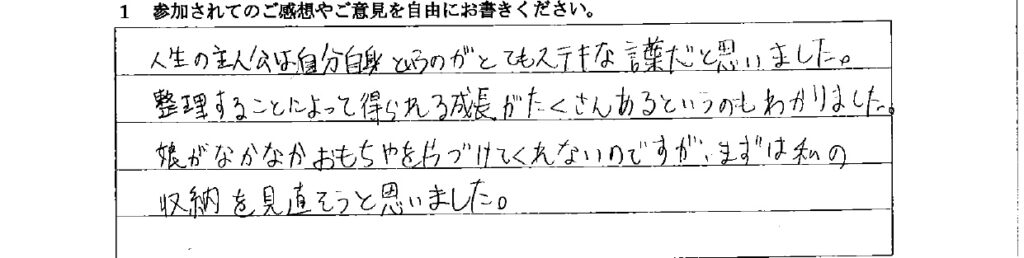 1 参加されてのご感想やご意見を自由にお書きください。
人生の主人公は自分自身というのがとてもステキな言葉だと思いました。
整理することによって得られる成長がたくさんあるというのもわかりました。
娘がなかなかおもちゃを片づけてくれないのですが、まずは私の
収納を見直そうと思いました。